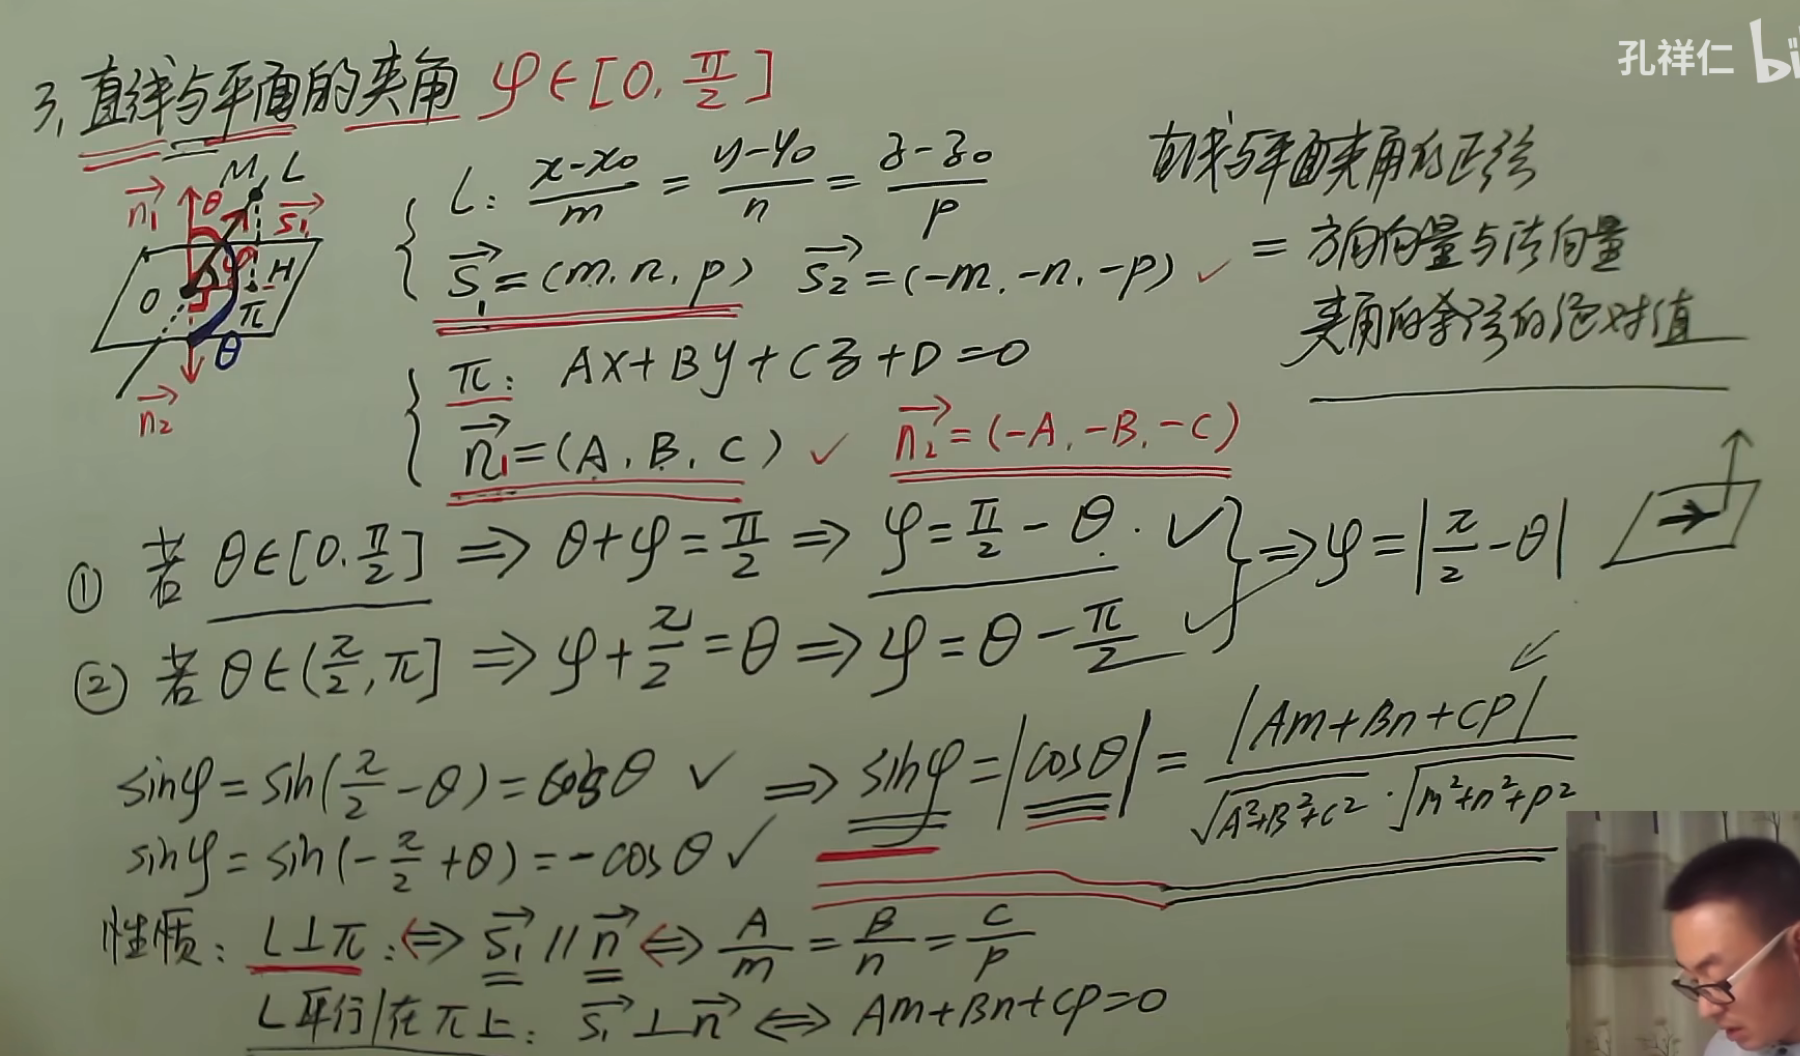 孔祥仁 bi
3. 直线与平面的夹角 φ∈[0, π/2]
M L
n₁→ θ s₁→
φ
O H
π
θ
n₂→
L: (x-x₀)/m = (y-y₀)/n = (z-z₀)/p
s₁→=(m, n, p) s₂→=(-m, -n, -p) ✓
π: Ax+By+Cz+D=0
n₁→=(A, B, C) ✓ n₂→=(-A, -B, -C)
直线与平面夹角的正弦
= 方向向量与法向量
夹角的余弦的绝对值
① 若 θ∈[0, π/2] ⇒ θ+φ=π/2 ⇒ φ=π/2-θ. ✓
② 若 θ∈(π/2, π] ⇒ φ+π/2=θ ⇒ φ=θ-π/2 ✓
⇒ φ=|π/2-θ|
sinφ=sin(π/2-θ)=cosθ ✓
sinφ=sin(-π/2+θ)=-cosθ ✓
⇒ sinφ=|cosθ|=|Am+Bn+Cp|/(√(A²+B²+C²)·√(m²+n²+p²))
性质: L⊥π: ⇔ s₁→ // n→ ⇔ A/m=B/n=C/p
L平行/在π上: s₁→⊥n→ ⇔ Am+Bn+Cp=0